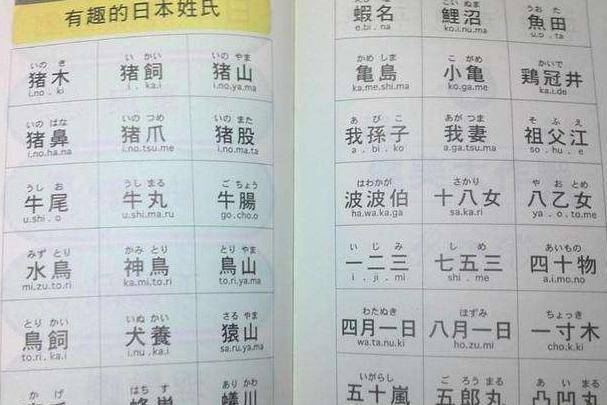 有趣的日本姓氏
いのき いかい いのやま
猪木 猪飼 猪山
i.no.ki i.kai i.no.ya.ma
いのはな いのつめ いのまた
猪鼻 猪爪 猪股
i.no.ha.na i.no.tsu.me i.no.ma.ta
うしお うしまる ごちょう
牛尾 牛丸 牛腸
u.shi.o u.shi.ma.ru go.cho.o
みずとり かみとり とりやま
水鳥 神鳥 鳥山
mi.zu.to.ri ka.mi.to.ri to.ri.ya.ma
とりかい いぬかい さるやま
鳥飼 犬養 猿山
to.ri.ka.i i.nu.ka.i sa.ru.ya.ma
かげ はちす ありかわ
蟻川
こいぬま うおた
蝦名 鯉沼 魚田
e.bi.na ko.i.nu.ma u.o.ta
かめしま こがめ かいで
亀島 小亀 鶏冠井
ka.me.shi.ma ko.ga.me ka.i.de
あびこ あがつま そふえ
我孫子 我妻 祖父江
a.bi.ko a.ga.tsu.ma so.hu.e
はわかが さかり やおとめ
波波伯 十八女 八乙女
ha.wa.ka.ga sa.ka.ri ya.o.to.me
いじみ しめ あいもの
一二三 七五三 四十物
i.ji.mi shi.me a.i.mo.no
わたぬき ほずみ ちょっき
四月一日 八月一日 一寸木
wa.ta.nu.ki ho.zu.mi cho.k.ki
いがらし ごろうまる あいまる
五十嵐 五郎丸 凸凹丸